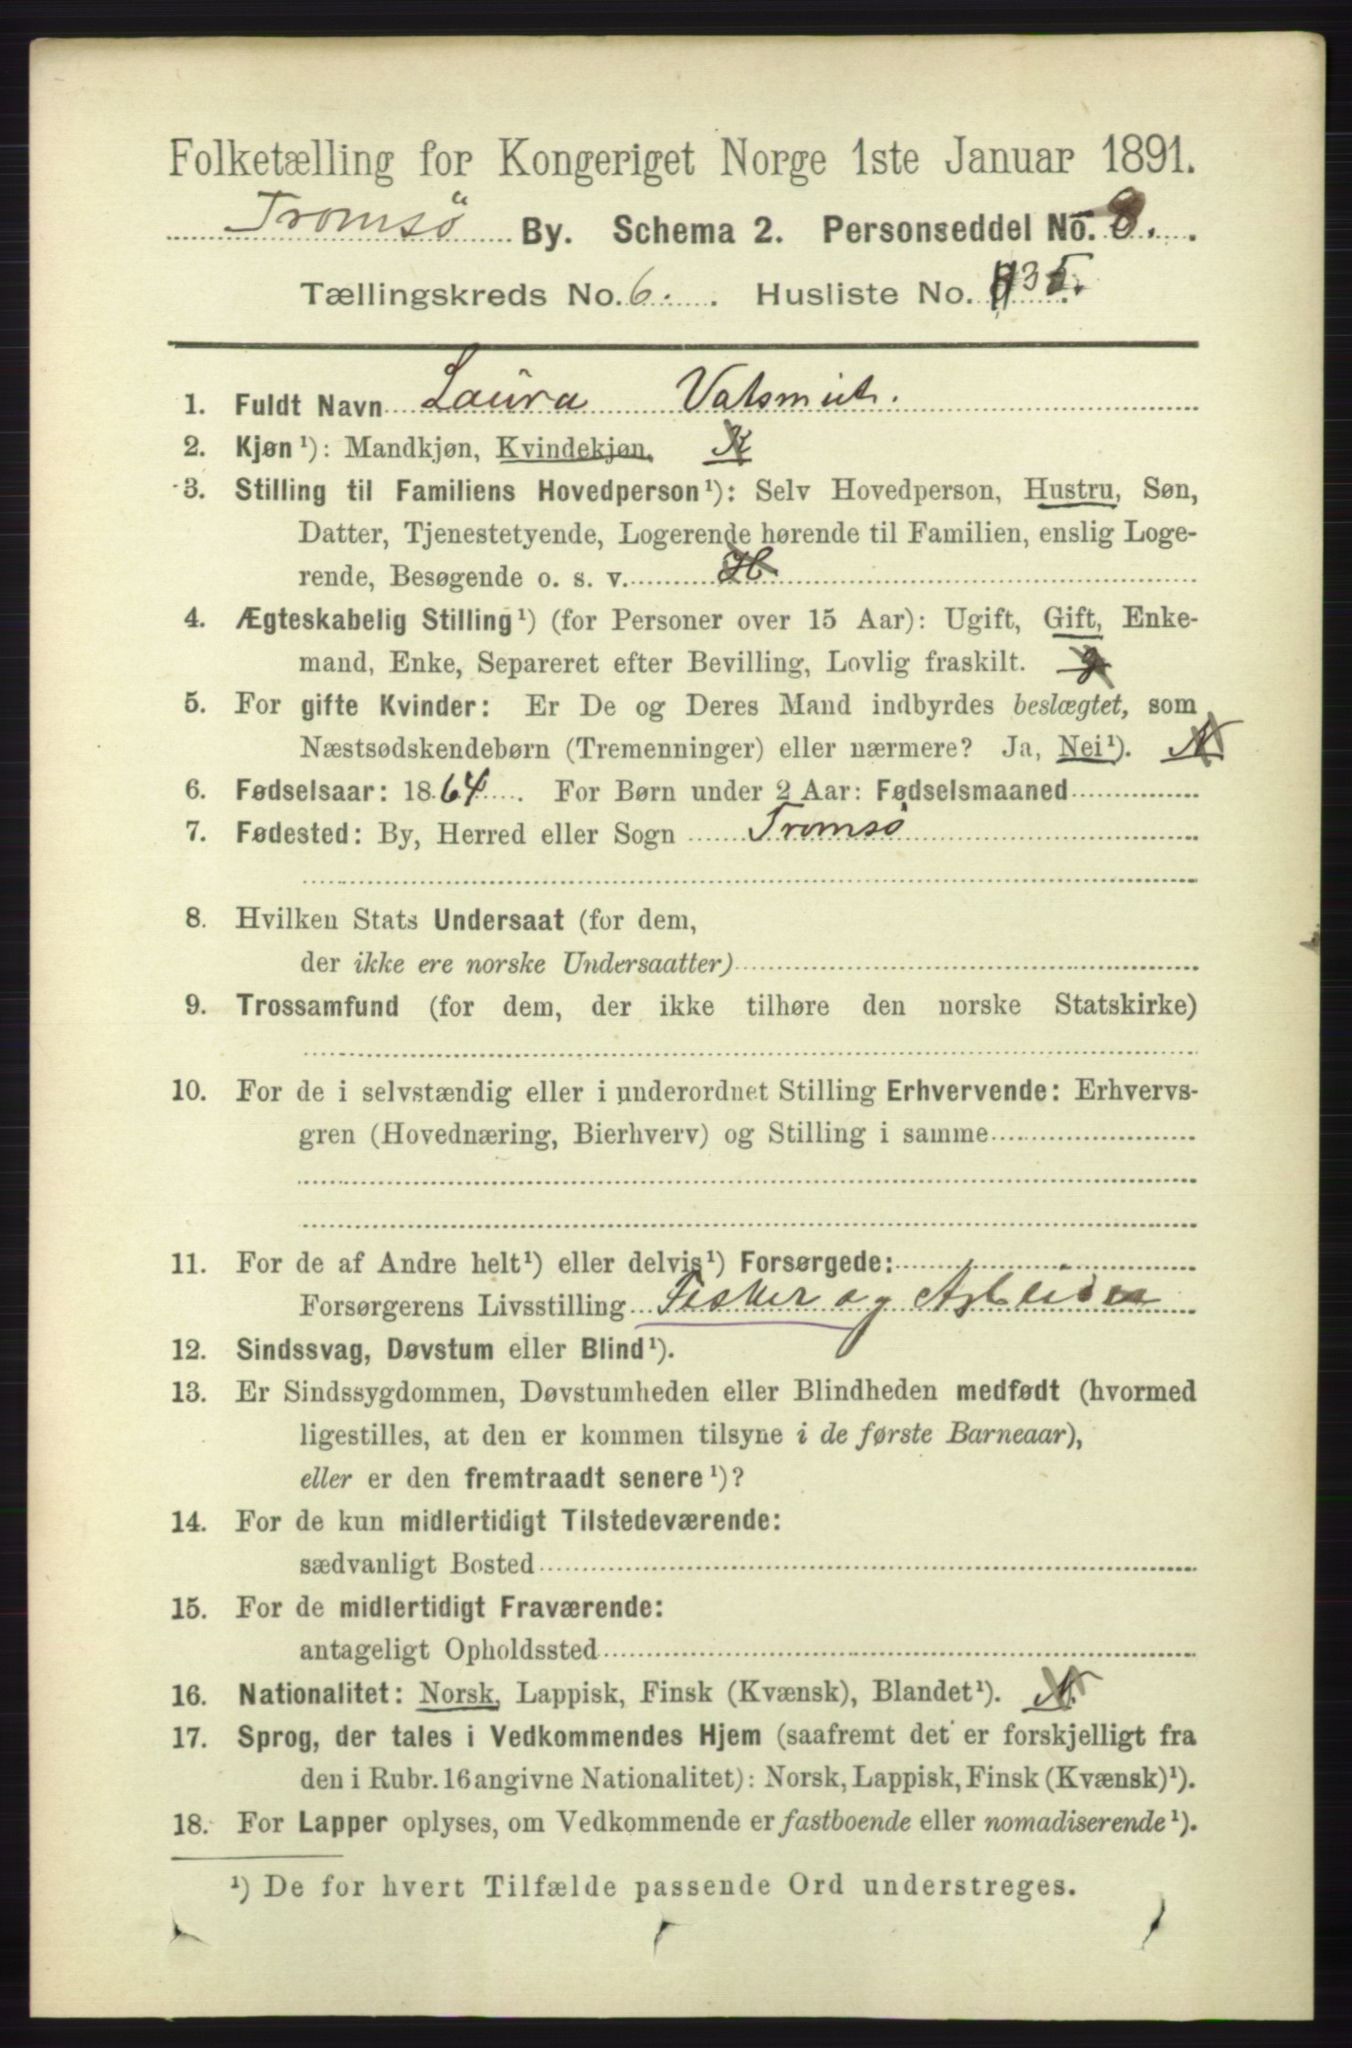 Folketælling for Kongeriget Norge 1ste Januar 1891.
Tromsö By. Schema 2. Personseddel No. 8.
Tællingskreds No. 6. Husliste No. 135.
1. Fuldt Navn Laura
2. Kjøn¹): Mandkjøn, Kvindekjøn. K
3. Stilling til Familiens Hovedperson¹): Selv Hovedperson, Hustru, Søn,
Datter, Tjenestetyende, Logerende hørende til Familien, enslig Loge-
rende, Besøgende o. s. v. H
4. Ægteskabelig Stilling¹) (for Personer over 15 Aar): Ugift, Gift, Enke-
mand, Enke, Separeret efter Bevilling, Lovlig fraskilt. g
5. For gifte Kvinder: Er De og Deres Mand indbyrdes beslægtet, som
Næstsødskendebørn (Tremenninger) eller nærmere? Ja, Nei¹). N
6. Fødselsaar: 1864. For Børn under 2 Aar: Fødselsmaaned
7. Fødested: By, Herred eller Sogn Tromsö
8. Hvilken Stats Undersaat (for dem,
der ikke ere norske Undersaatter)
9. Trossamfund (for dem, der ikke tilhøre den norske Statskirke)
10. For de i selvstændig eller i underordnet Stilling Erhvervende: Erhvervs-
gren (Hovednæring, Bierhverv) og Stilling i samme
11. For de af Andre helt¹) eller delvis¹) Forsørgede:
Forsørgerens Livsstilling Fisker og Arbeider
12. Sindssvag, Døvstum eller Blind¹).
13. Er Sindssygdommen, Døvstumheden eller Blindheden medfødt (hvormed
ligestilles, at den er kommen tilsyne i de første Barneaar),
eller er den fremtraadt senere¹)?
14. For de kun midlertidigt Tilstedeværende:
sædvanligt Bosted
15. For de midlertidigt Fraværende:
antageligt Opholdssted
16. Nationalitet: Norsk, Lappisk, Finsk (Kvænsk), Blandet¹). N.
17. Sprog, der tales i Vedkommendes Hjem (saafremt det er forskjelligt fra
den i Rubr. 16 angivne Nationalitet): Norsk, Lappisk, Finsk (Kvænsk)¹).
18. For Lapper oplyses, om Vedkommende er fastboende eller nomadiserende¹).
¹) De for hvert Tilfælde passende Ord understreges.